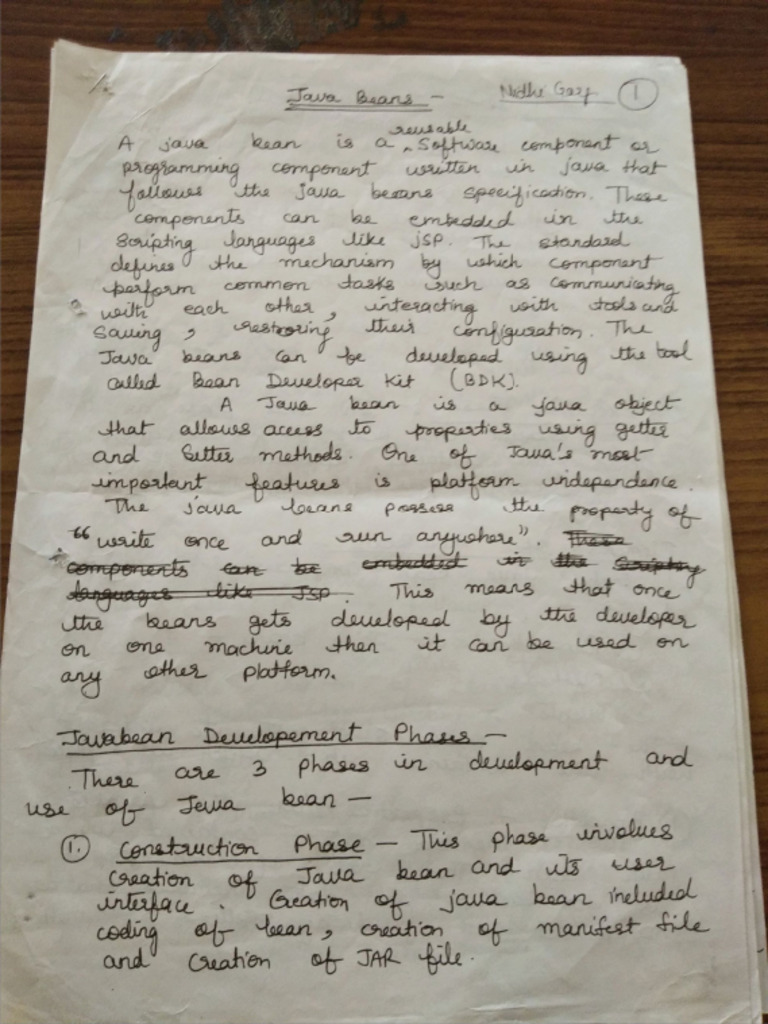 Java Beans -
Nidhi Garg 1
reusable
A java bean is a ‸ Software component or
programming component written in java that
follows the java beans specification. These
components can be embedded in the
Scripting languages like JSP. The standard
defines the mechanism by which component
perform common tasks such as communicating
with each other, interacting with tools and
Saving, restoring their configuration. The
Java beans can be developed using the tool
called Bean Developer Kit (BDK).
A Java bean is a java object
that allows access to properties using getter
and Setter methods. One of Java's most
important features is platform independence.
The java beans possess the property of
"write once and run anywhere". These
components can be embedded in the Scripting
languages like JSP. This means that once
the beans gets developed by the developer
on one machine then it can be used on
any other platform.
Javabean Developement Phases -
There are 3 phases in development and
use of Java bean -
1. Construction Phase - This phase involves
Creation of Java bean and its user
interface. Creation of java bean included
coding of bean, creation of manifest file
and Creation of JAR file.